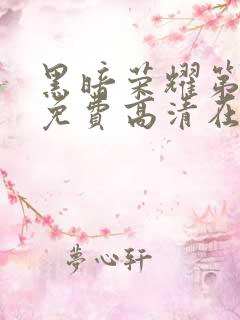 黑暗荣耀第
免费高清在
夢心轩